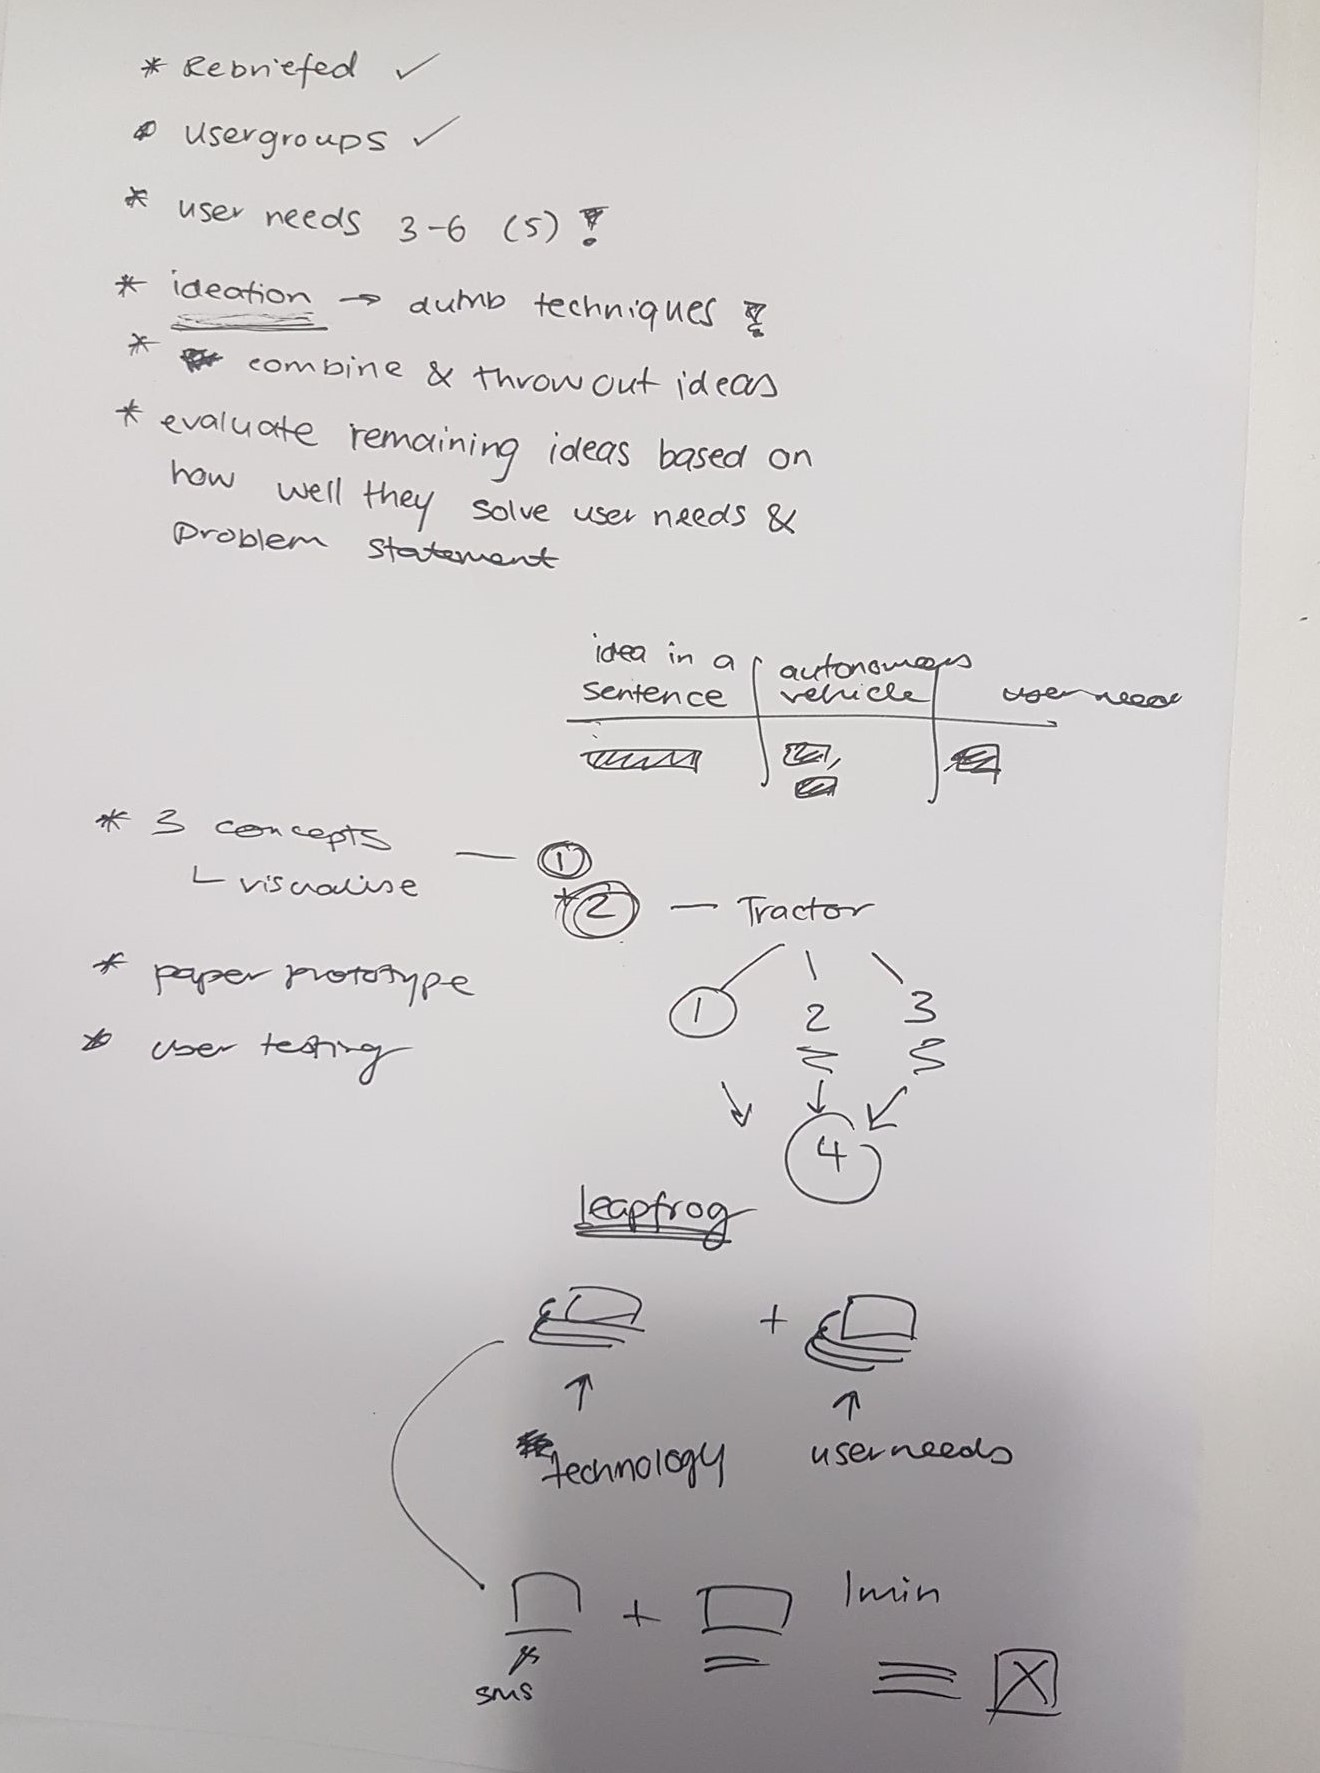 * Rebriefed ✓
* usergroups ✓
* user needs 3-6 (5) !
* ideation → dumb techniques !
* combine & throw out ideas
* evaluate remaining ideas based on
how well they solve user needs &
problem statement
idea in a
sentence
autonomous
vehicle
user need
* 3 concepts — 1
visualise
* 2 — Tractor
* paper prototype
1 2 3
* user testing
4
leapfrog
+
technology
user needs
+ 1min
sms